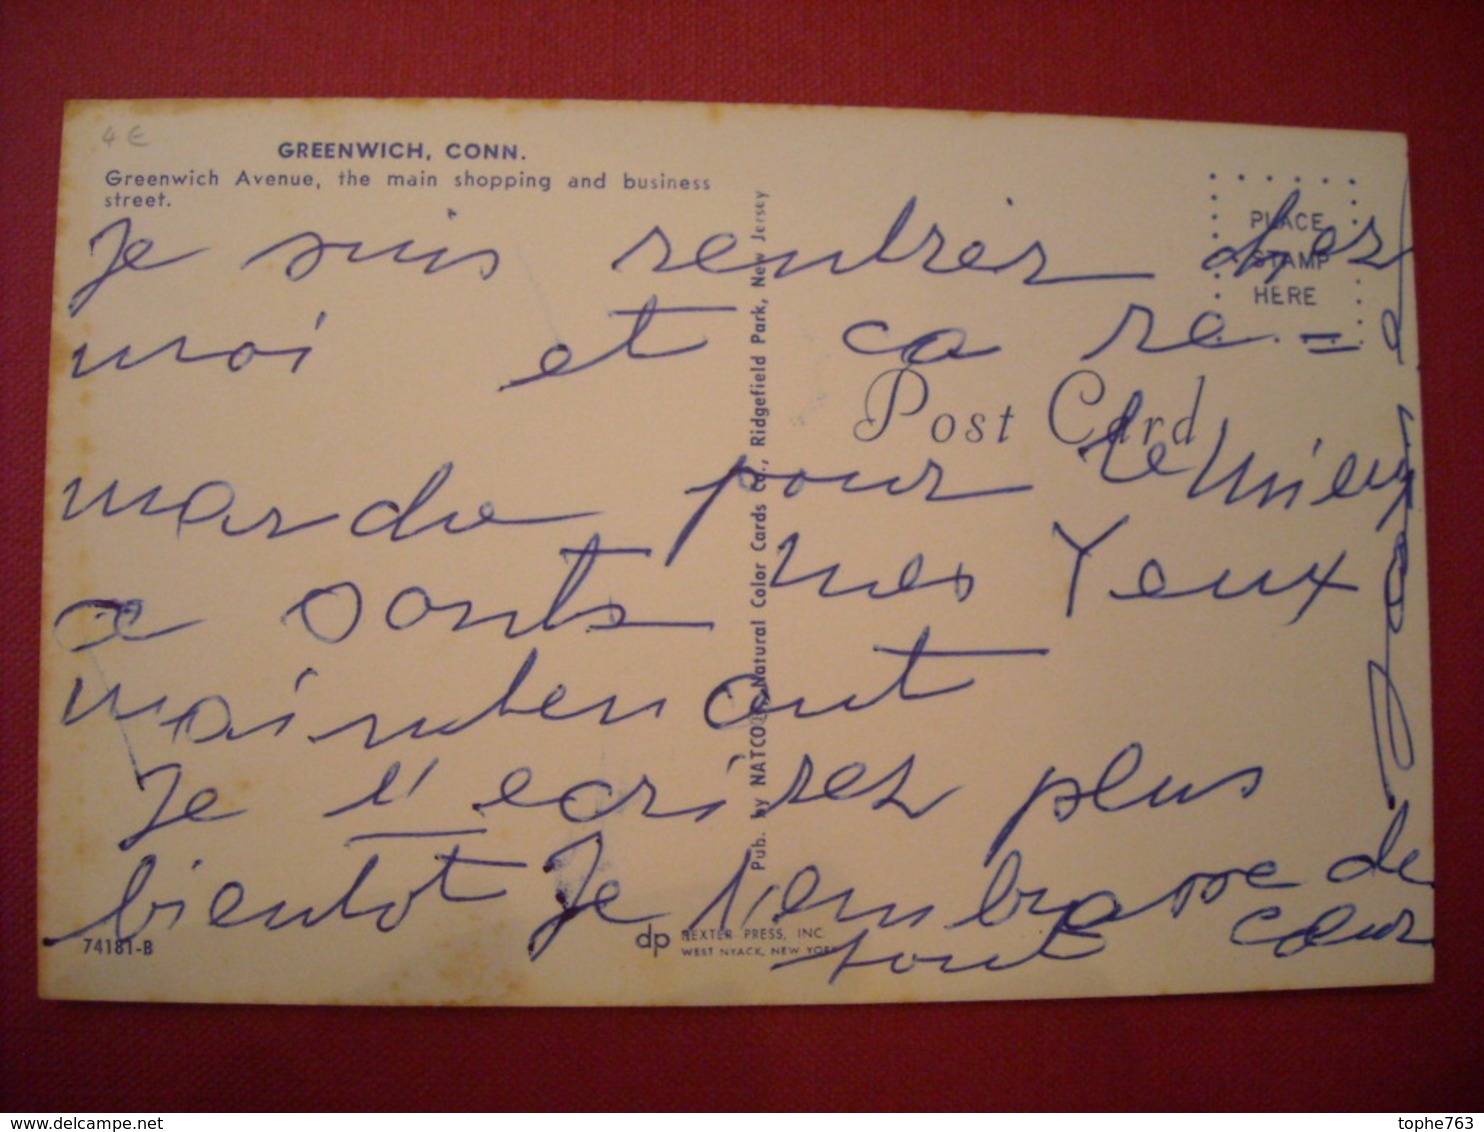 4 €
GREENWICH, CONN.
Greenwich Avenue, the main shopping and business
street.
PLACE
STAMP
HERE
Post Card
Je suis rentrer chez
moi et ca re=
marche pour le mieux
ce sonts mes Yeux
maintenant
Je t'ecrirez plus
bientot Je t'embrasse de
tout cœur
Pub. by NATCO® Natural Color Cards Co., Ridgefield Park, New Jersey
74181-B
dp DEXTER PRESS, INC.
WEST NYACK, NEW YORK
tophe763